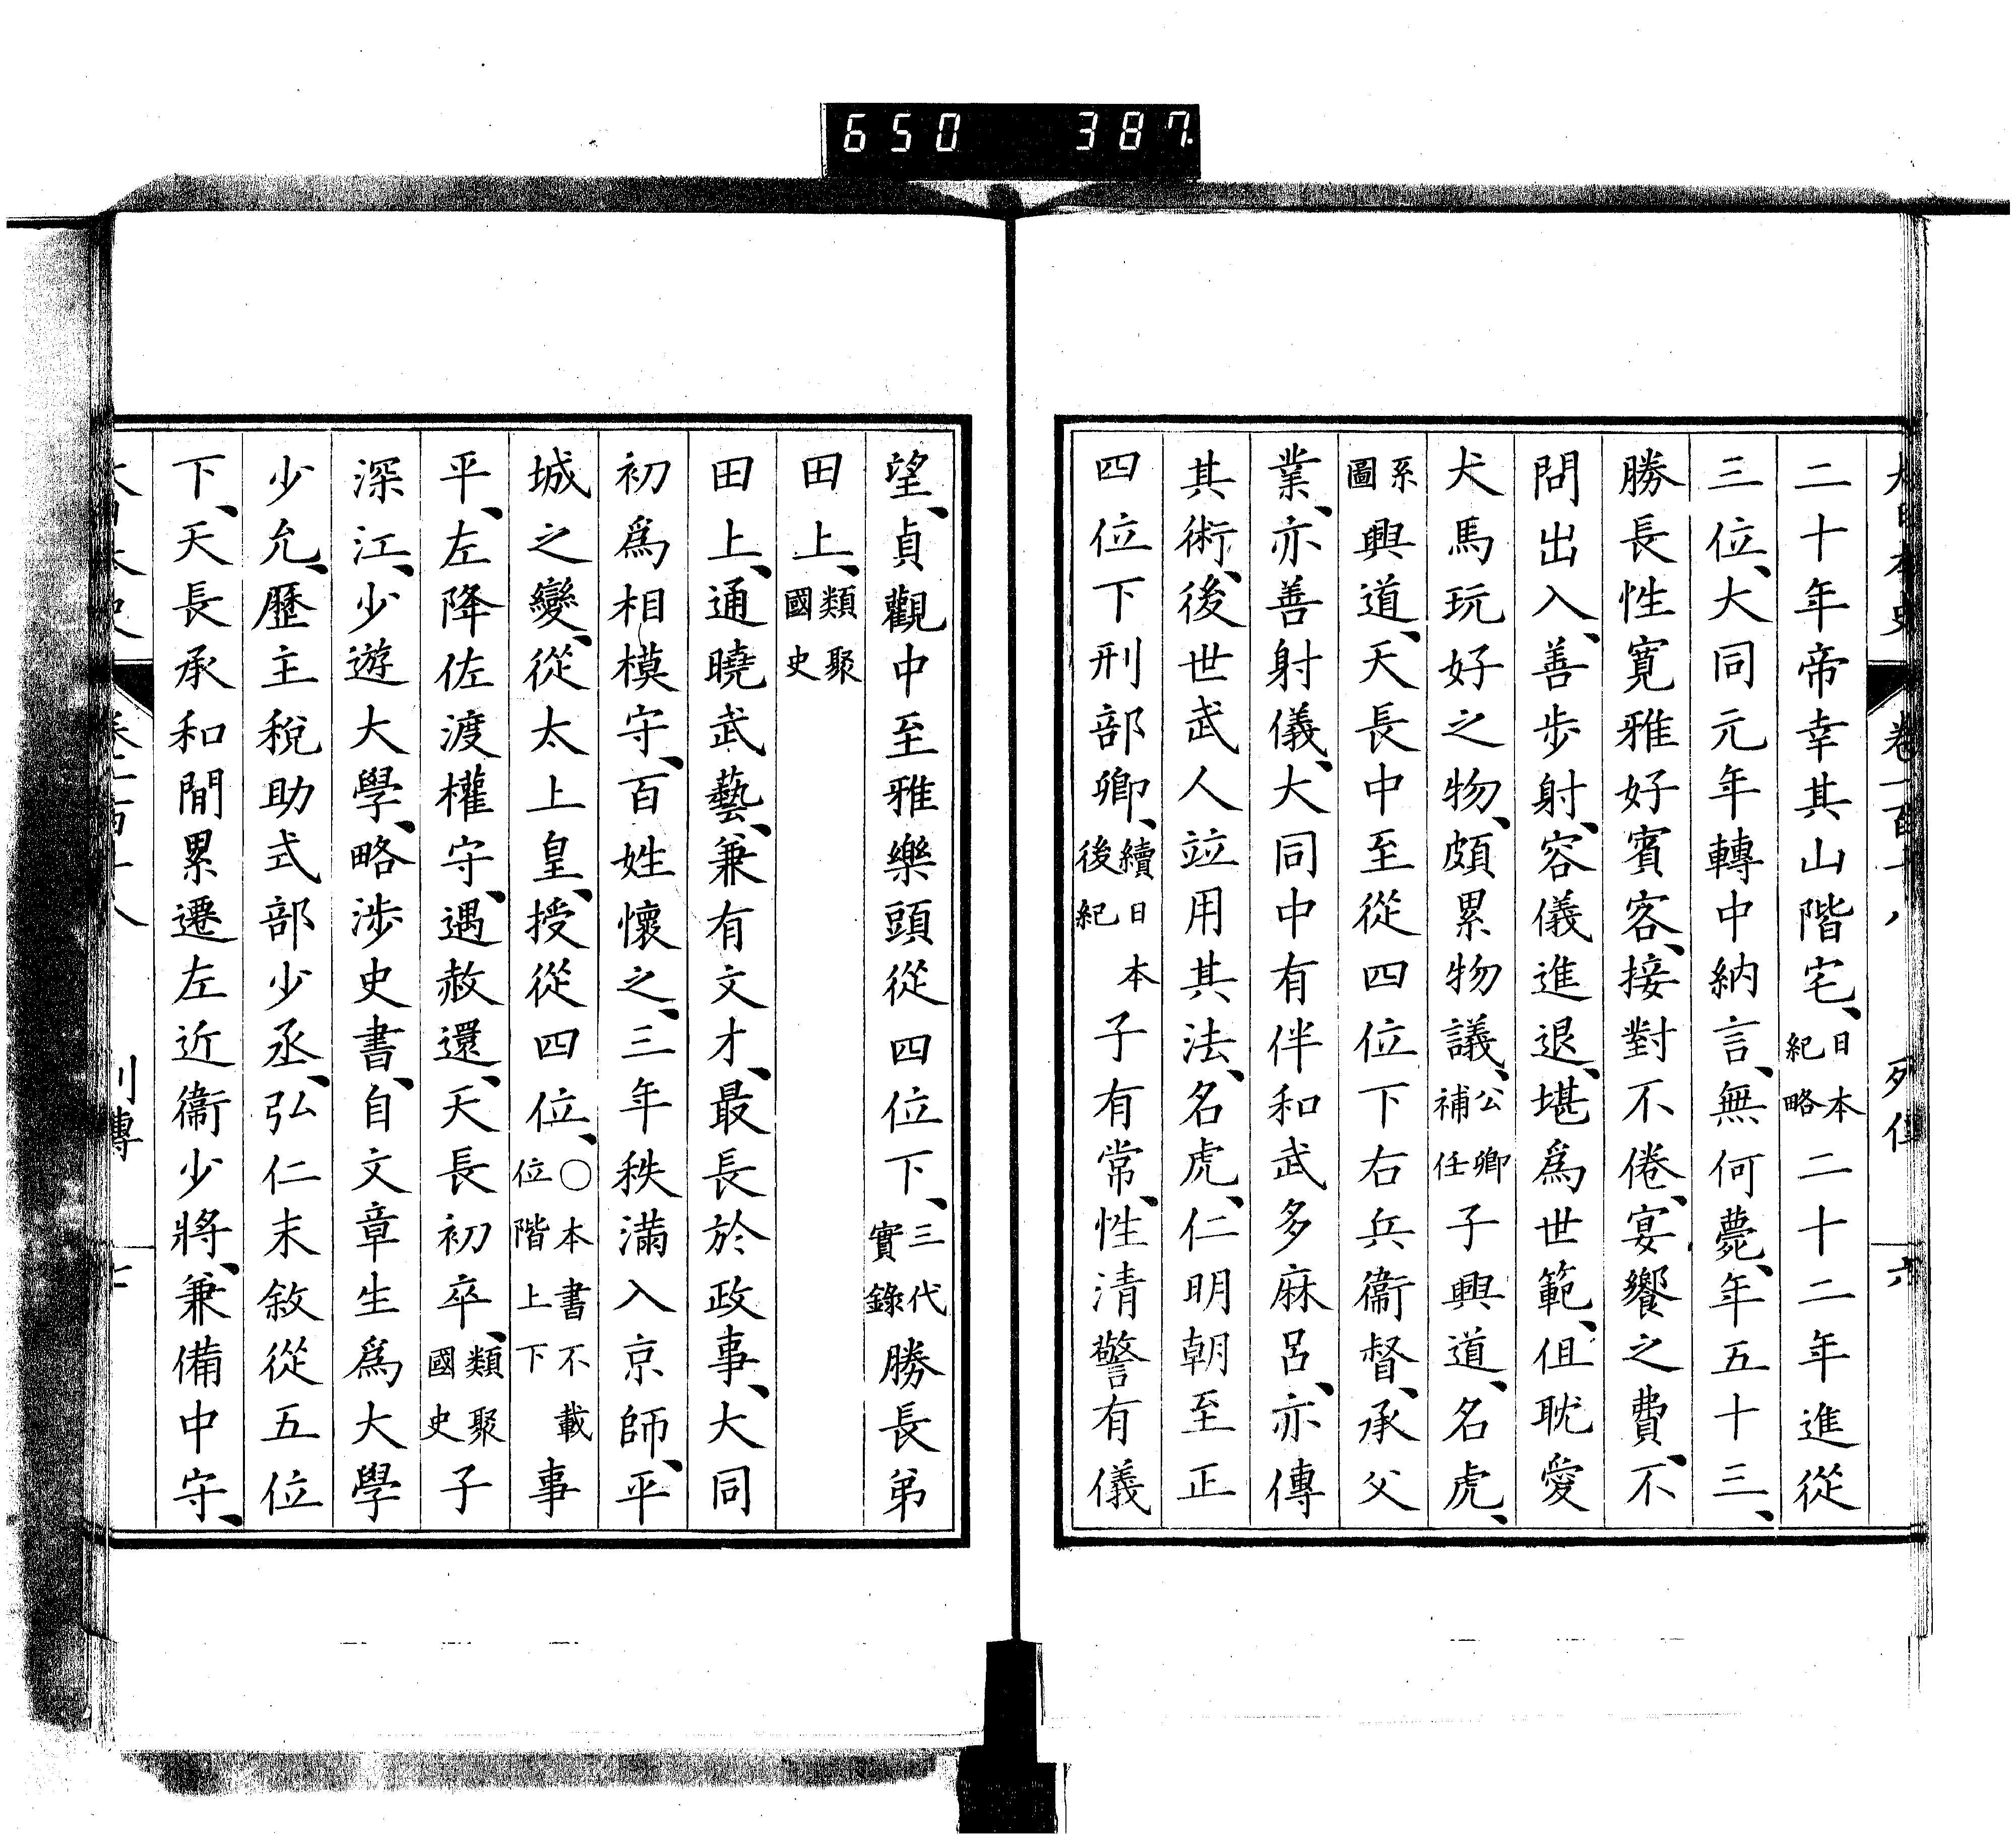 650 387
大日本史 卷一百十八 列傳 六
二十年帝幸其山階宅、日本紀略二十二年進從
三位、大同元年轉中納言、無何薨、年五十三、
勝長性寬雅好賓客、接對不倦、宴饗之費、不
問出入、善步射、容儀進退、堪爲世範、但耽愛
犬馬玩好之物、頗累物議、公卿補任子興道、名虎、
系圖興道、天長中至從四位下右兵衞督、承父
業、亦善射儀、大同中有伴和武多麻呂、亦傳
其術、後世武人竝用其法、名虎、仁明朝至正
四位下刑部卿、續日本後紀子有常、性清警有儀
望、貞觀中至雅樂頭從四位下、三代實錄勝長弟
田上、類聚國史
田上、通曉武藝、兼有文才、最長於政事、大同
初爲相模守、百姓懷之、三年秩滿入京師、平
城之變、從太上皇、授從四位、○本書不載位階上下事
平、左降佐渡權守、遇赦還、天長初卒、類聚國史子
深江、少遊大學、略涉史書、自文章生爲大學
少允、歷主稅助式部少丞、弘仁末敘從五位
下、天長承和閒累遷左近衞少將、兼備中守、
列傳